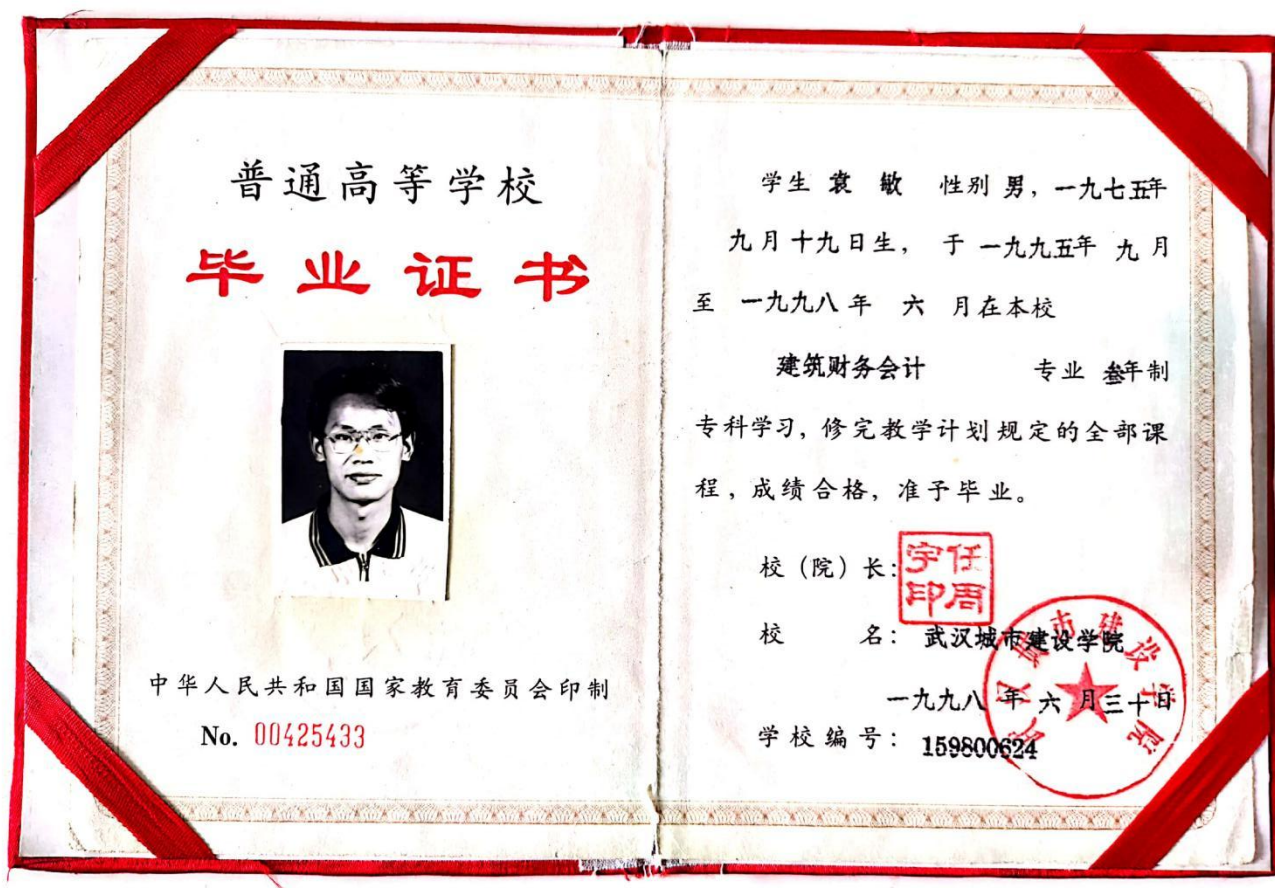 普通高等学校
毕业证书
中华人民共和国国家教育委员会印制
No. 00425433
学生 袁 敏 性别 男，一九七五年
九月十九日生， 于 一九九五年 九月
至 一九九八年 六 月在本校
建筑财务会计 专业 叁年制
专科学习，修完教学计划规定的全部课
程，成绩合格，准予毕业。
校（院）长：
任周宇印
校 名： 武汉城市建设学院
一九九八年六月三十日
学校编号： 159800624
武汉城市建设学院